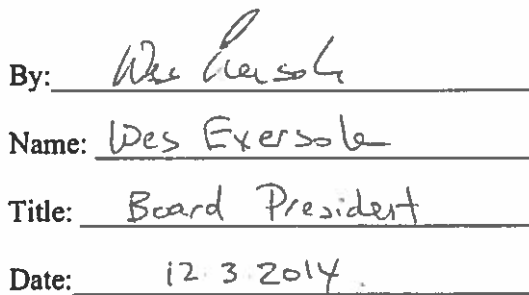 By: Wes Eversole
Name: Wes Eversole
Title: Board President
Date: 12.3.2014